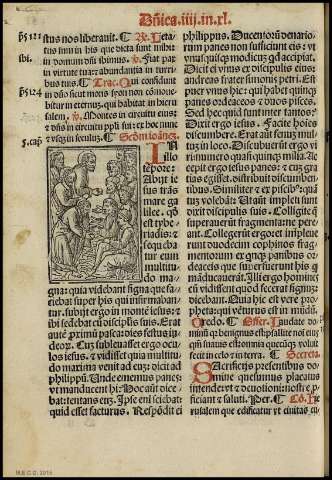 Dñica.iiij.in.xl.
stus nos liberauit. ℂ Gr. Leta-
ps 121
tus sum in his que dicta sunt mihi:
ibi.
in domum dñi ibimus. ℣. Fiat pax
in virtute tua: ⁊ abundantia in turri-
bus tuis. ℂ Trac. Qui confidunt
ps 124
in dño sicut mons syon non cõmoue-
bitur in eternũ: qui habitat in hieru
salem. ℣. Montes in circuitu eius:
⁊ dñs in circuitu ppli sui: ex hoc nunc
⁊ vsq; in seculũ.
6. cap.
IN
illo
tẽpore:
Abijt ie
sus trãs
mare ga
lilee. qđ
est tybe-
riadis: ⁊
sequeba
tur eum
multitu
do ma-
gna: quia videbant signa: que fa-
ciebat super his qui infirmaban
tur. subijt ergo in montẽ iesus: ⁊
ibi sedebat cũ discipulis suis. Erat
autẽ primũ pasca dies festus iu-
deor. Cum subleuasset ergo ocu
los iesus: ⁊ vidisset quia multitu
do maxima venit ad eum: dicit ad
philippũ. Unde ememus panes:
vt manducent hi: Hoc autẽ dice-
bat: tentans eum. Ipse eni sciebat:
quid esset facturus. Respõdit ei
philippus. Ducentorũ denario-
rum panes non sufficiunt eis: vt
vnusquisq; modicum qd accipiat.
Dicit ei vnus ex discipulis eius:
andreas frater simonis petri. Est
puer vnus hic: qui habet quinq;
panes ordeaceos ⁊ duos pisces.
Sed hec quid sunt inter tantos:
Dixit ergo iesus. Facite hoĩes
discumbere. Erat aũt fenuz mul-
tuz in loco. Discubuerũt ergo vi
ri numero quasi quinq; milia. Ac
cepit ergo iesus panes: ⁊ cum gra
tias egisset. distribuit discumben-
tibus. Similiter ⁊ ex piscib⁹: quã
tuz volebãt. Ut aũt impleti sunt
dixit discipulis suis. Colligite q̃
superauerũt fragmenta ne pere-
ant. Collegerũt ergo: et impleue
runt duodecim cophinos frag-
mentorum ex qnq; panibus or-
deaceis que suꝑfuerunt his q̃
mãducauerãt. Illi ergo homines
cũ vidissent quod fecerat signuz:
dicebant. Quia hic est vere pro-
pheta: qui vẽturus est in mũdũ.
Credo. ℂ Offer. Laudate do-
minũ quia benignus est: psallite noĩ eius
qm̃ suauis est: omnia quecũq; voluit
fecit in celo ⁊ in terra. ℂ Secreta.
Sacrificijs presentibus do-
mine quesumus placatus
intende: vt ⁊ deuotioni nostre ꝓ-
ficiant ⁊ saluti. Per. ℂ Cõ. Hie
rusalem que edificatur vt ciuitas cu-